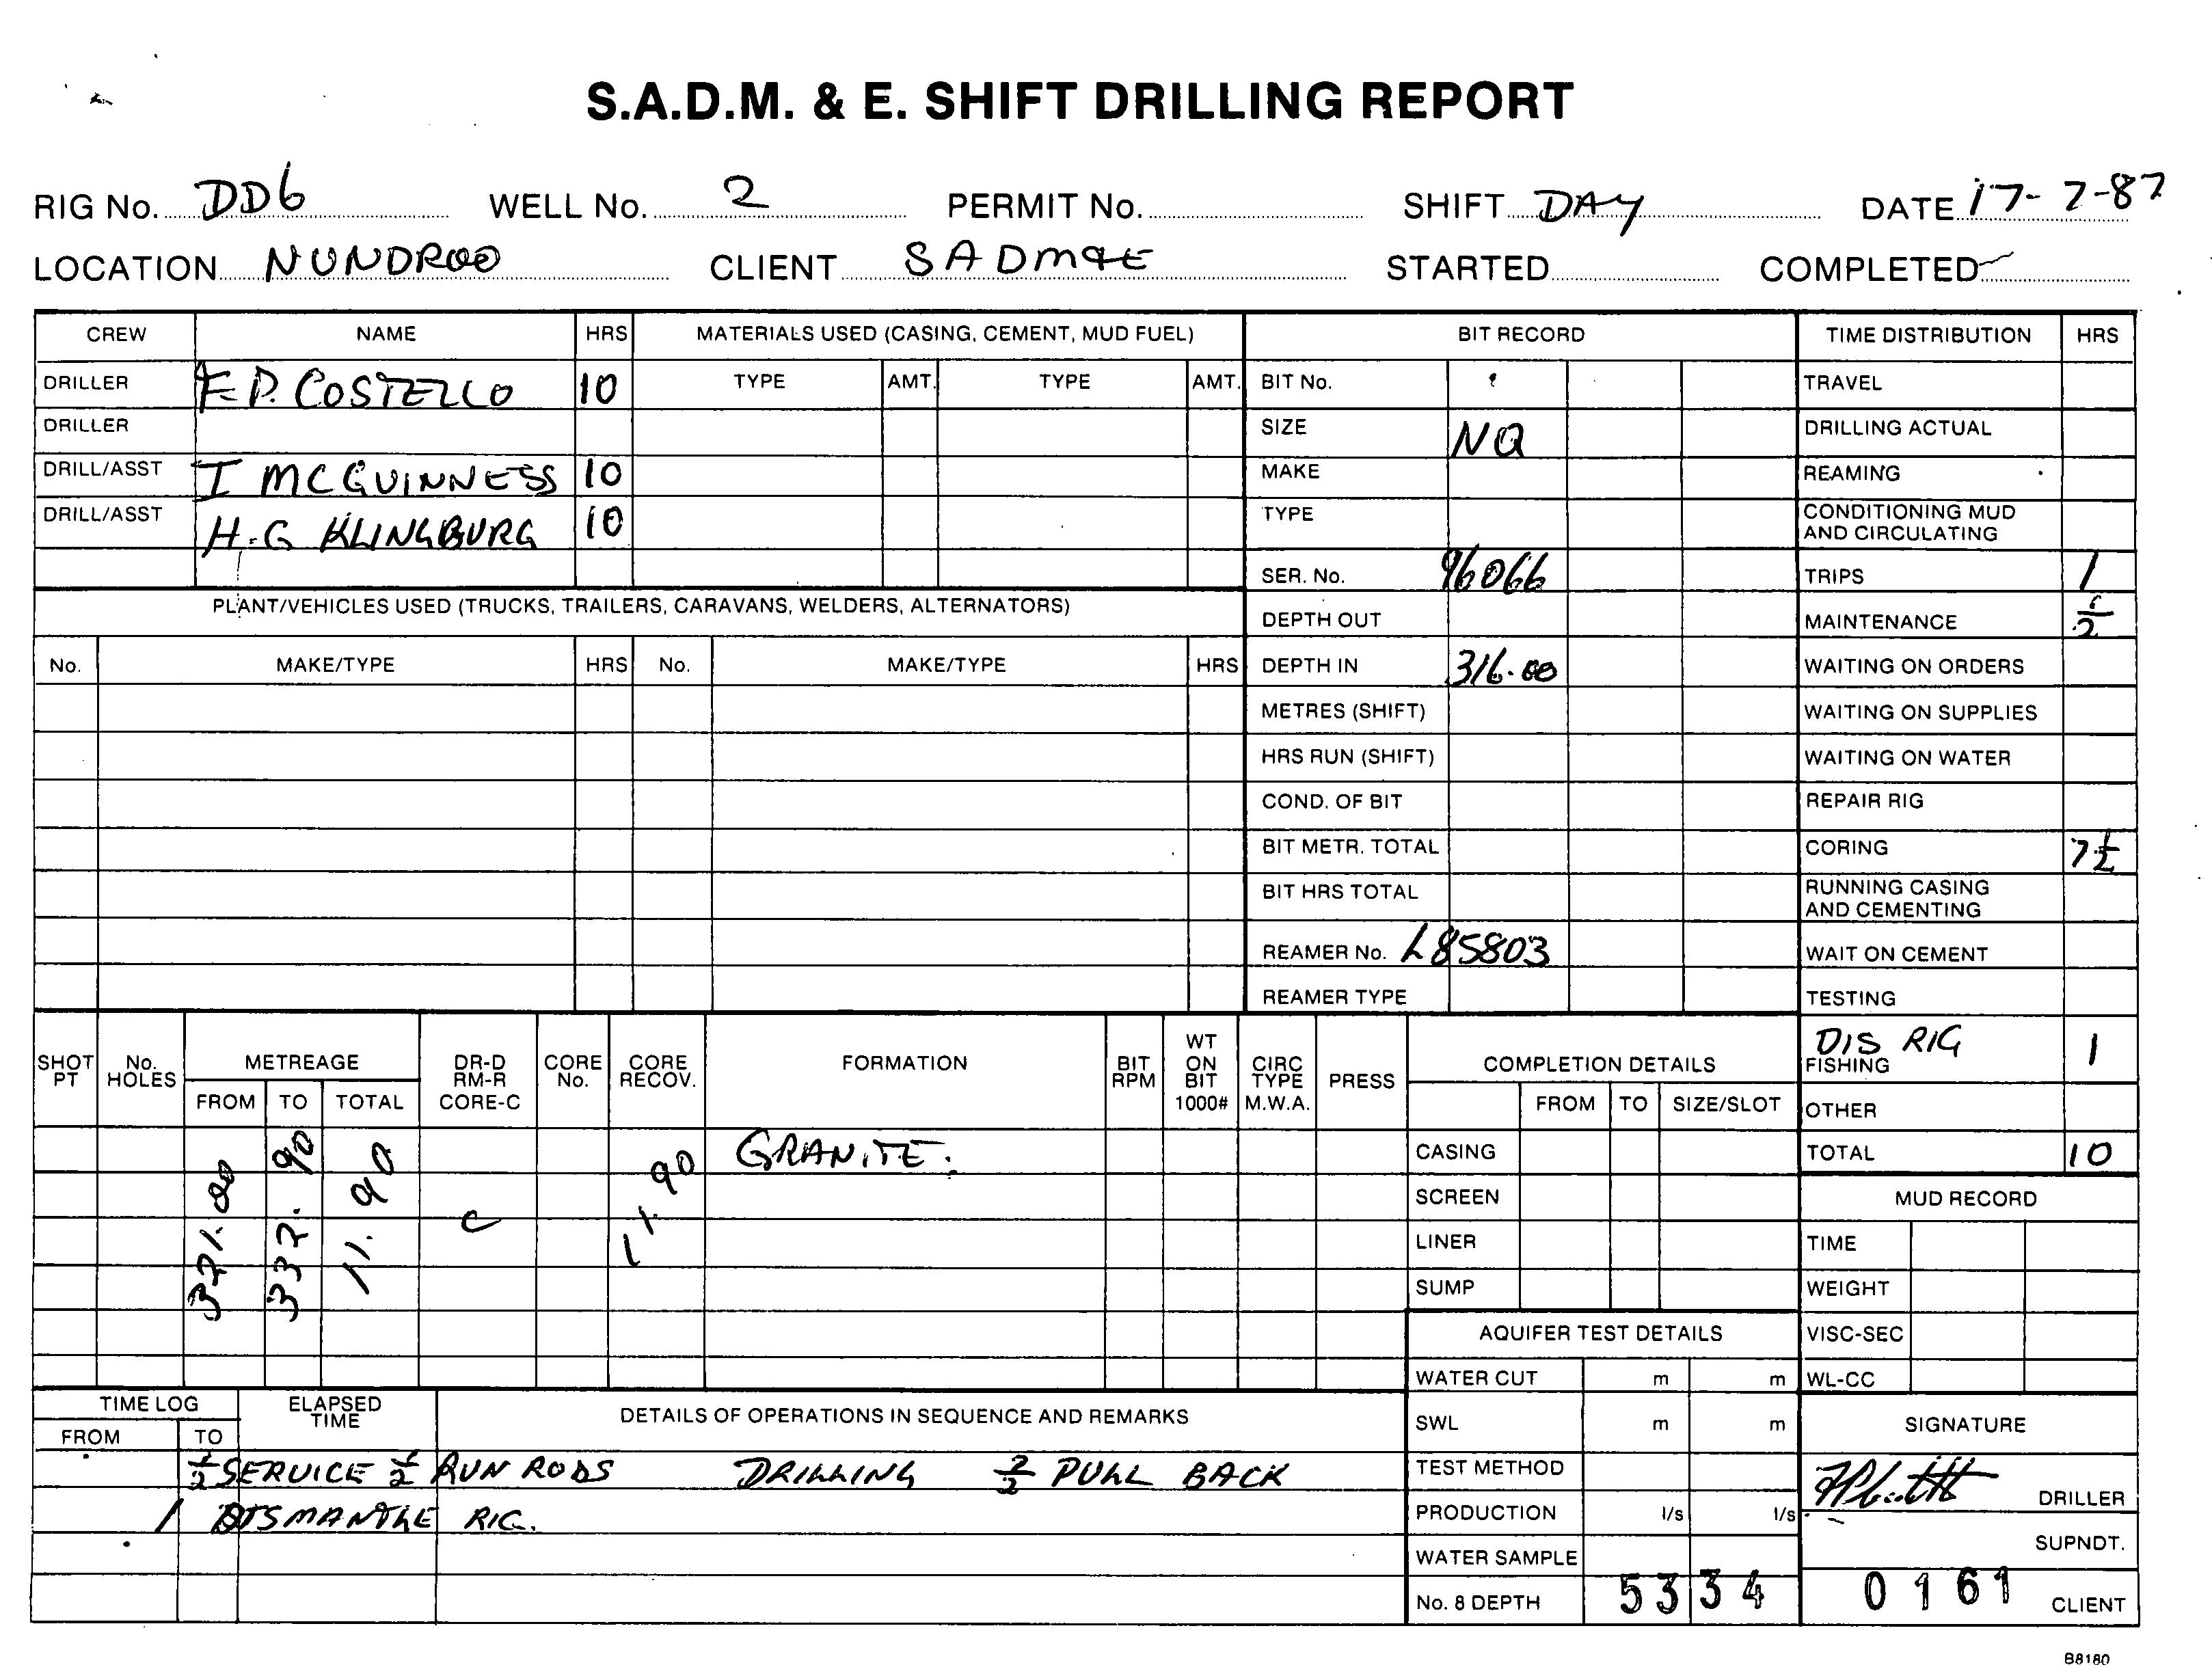 S.A.D.M. & E. SHIFT DRILLING REPORT
RIG No. DD6 WELL No. 2 PERMIT No. SHIFT DAY DATE 17-7-87
LOCATION NUNDROO CLIENT SADM&E STARTED COMPLETED
CREW NAME HRS MATERIALS USED (CASING, CEMENT, MUD FUEL) BIT RECORD TIME DISTRIBUTION HRS
DRILLER F.P. COSTELLO 10 TYPE AMT. TYPE AMT. BIT No. TRAVEL
DRILLER SIZE NQ DRILLING ACTUAL
DRILL/ASST I MCGUINNESS 10 MAKE REAMING
DRILL/ASST H.G KLINGBURG 10 TYPE CONDITIONING MUD
AND CIRCULATING
SER. No. 96066 TRIPS 1
PLANT/VEHICLES USED (TRUCKS, TRAILERS, CARAVANS, WELDERS, ALTERNATORS) DEPTH OUT MAINTENANCE 1/2
No. MAKE/TYPE HRS No. MAKE/TYPE HRS DEPTH IN 316.00 WAITING ON ORDERS
METRES (SHIFT) WAITING ON SUPPLIES
HRS RUN (SHIFT) WAITING ON WATER
COND. OF BIT REPAIR RIG
BIT METR. TOTAL CORING 7 1/2
BIT HRS TOTAL RUNNING CASING
AND CEMENTING
REAMER No. L85803 WAIT ON CEMENT
REAMER TYPE TESTING
DIS RIG 1
SHOT PT No. HOLES METREAGE DR-D RM-R CORE-C CORE No. CORE RECOV. FORMATION BIT RPM WT ON BIT 1000# CIRC TYPE M.W.A. PRESS COMPLETION DETAILS FISHING
FROM TO TOTAL FROM TO SIZE/SLOT OTHER
321.00 337.90 11.90 C 11.90 GRANITE. CASING TOTAL 10
SCREEN MUD RECORD
LINER TIME
SUMP WEIGHT
AQUIFER TEST DETAILS VISC-SEC
WATER CUT m m WL-CC
TIME LOG ELAPSED TIME DETAILS OF OPERATIONS IN SEQUENCE AND REMARKS SWL m m SIGNATURE
FROM TO
1/2 SERVICE 1/2 RUN RODS DRILLING 1/2 PULL BACK TEST METHOD
1 DISMANTLE RIG. PRODUCTION l/s l/s DRILLER
WATER SAMPLE SUPNDT.
No. 8 DEPTH 5334 0161 CLIENT
B8180